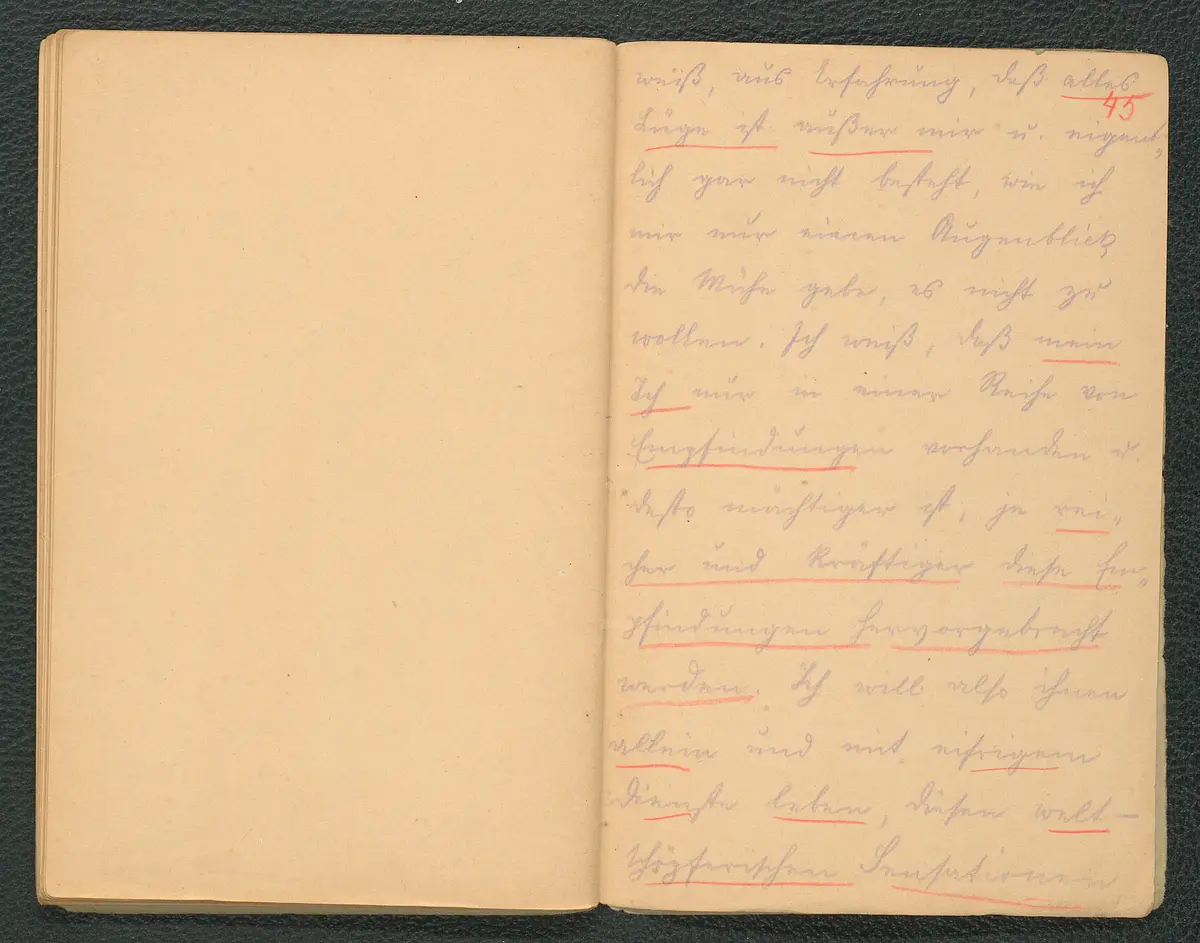 weiß, aus Erfahrung, daß alles
45
Lüge ist außer mir u. eigent„
lich gar nicht besteht, wie ich
mir nur einen Augenblick
die Mühe gebe, es nicht zu
wollen. Ich weiß, daß mein
Ich nur in einer Reihe von
Empfindungen vorhanden u.
desto mächtiger ist, je rei„
cher und kräftiger diese Em„
pfindungen hervorgebracht
werden. Ich will also ihnen
allein und mit eifrigem
Dienste leben, diesen welt-
schöpferischen Sensationen